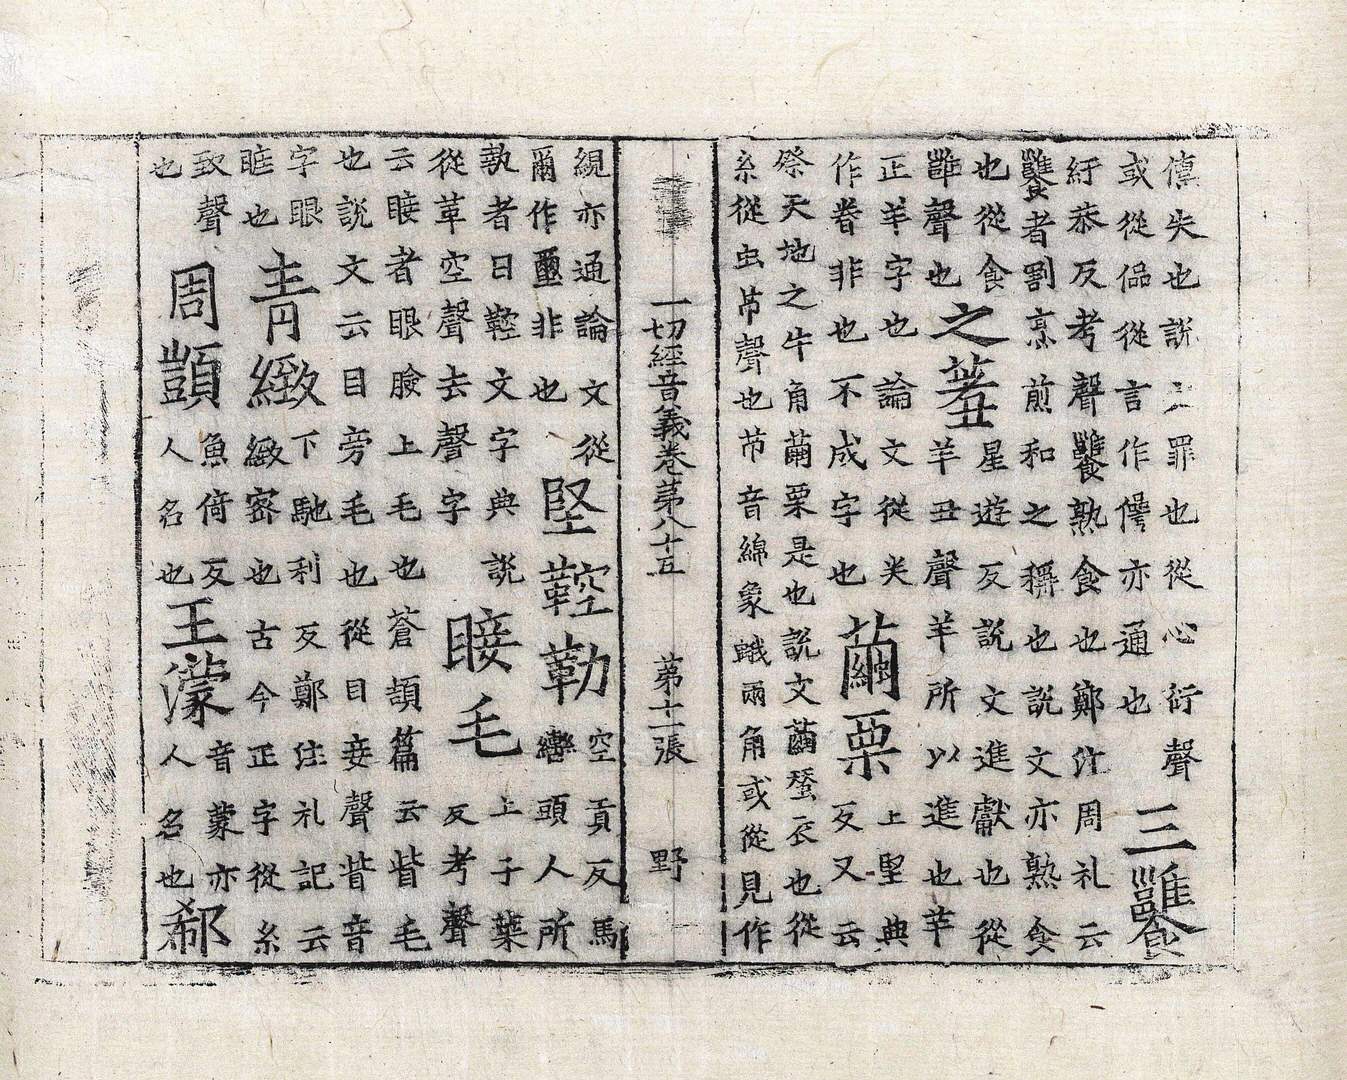 儣失也說文罪也從心衍聲三饔
或從侃從言作諐亦通也
紆恭反考聲饔熟食也鄭注周礼云
饔者割烹煎和之稱也說文亦熟食
也從食
雝聲也之羞
星遊反說文進獻也從
羊丑聲羊所以進也羊
正羊字也論文從关
作眷非也不成字也繭栗
上堅典
反又云
祭天地之牛角繭栗是也說文繭蝅衣也從
糸從虫芇聲也芇音綿象蛾兩角或從見作
一切經音義卷苐八十五 苐十二張 野
絸亦通論文從
爾作壐非也堅鞚勒
空貢反馬
轡頭人所
執者曰鞚文字典說
從革空聲去聲字䀹毛
上子葉
反考聲
云䀹者眼瞼上毛也蒼頡篇云眥毛
也說文云目旁毛也從目妾聲眥音
字眼
眶也青緻
下馳利反鄭注礼記云
緻密也古今正字從糸
致聲
也周顗
魚倚反
人名也王濛
音蒙亦
人名也郗